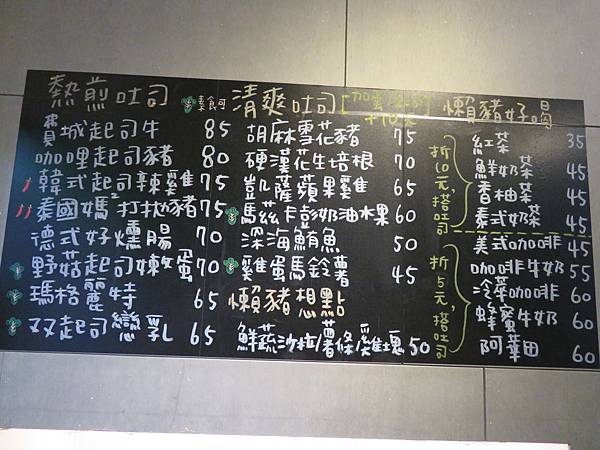 熱煎吐司 素食可
費城起司牛 85
咖哩起司豬 80
韓式起司辣雞 75
泰國媽²打拋豬 75
德式好燻腸 70
野菇起司嫩蛋 70
瑪格麗特 65
双起司戀乳 65
清爽吐司
胡麻雪花豬 75
硬漢花生培根 70
凱薩蘋果雞 65
馬茲卡彭奶油水果 60
深海鮪魚 50
雞蛋馬鈴薯 45
懶豬想點
鮮蔬沙拉/薯條/雞塊 50
懶豬好喝
紅茶 35
鮮奶茶 45
香柚茶 45
泰式奶茶 45
折10元,搭吐司
美式咖啡 45
咖啡牛奶 55
冷萃咖啡 60
蜂蜜牛奶 60
阿華田 60
折5元,搭吐司